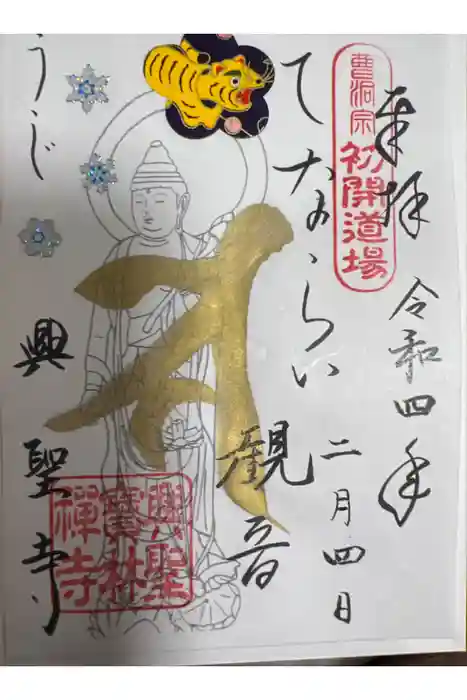 奉拝
令和四年
二月四日
曹洞宗
初開道場
てならい
観音
うじ
興聖寺
興聖
寶林
禪寺